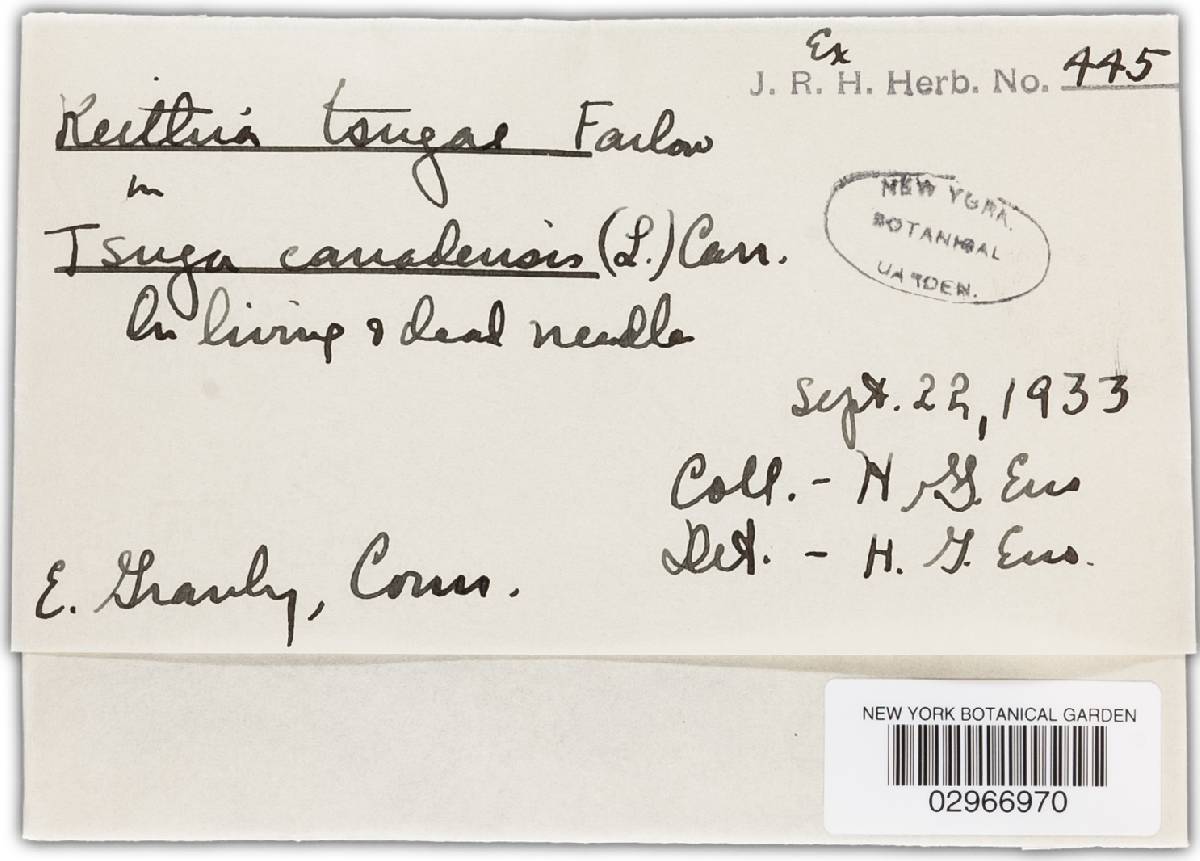 Ex
J. R. H. Herb. No. 445
Keithia tsugae Farlow
on
Tsuga canadensis (L.) Carr.
On living & dead needles
NEW YORK
BOTANICAL
GARDEN.
Sept. 22, 1933
Coll. - H. G. Eno
Det. - H. G. Eno.
E. Granby, Conn.
NEW YORK BOTANICAL GARDEN
02966970